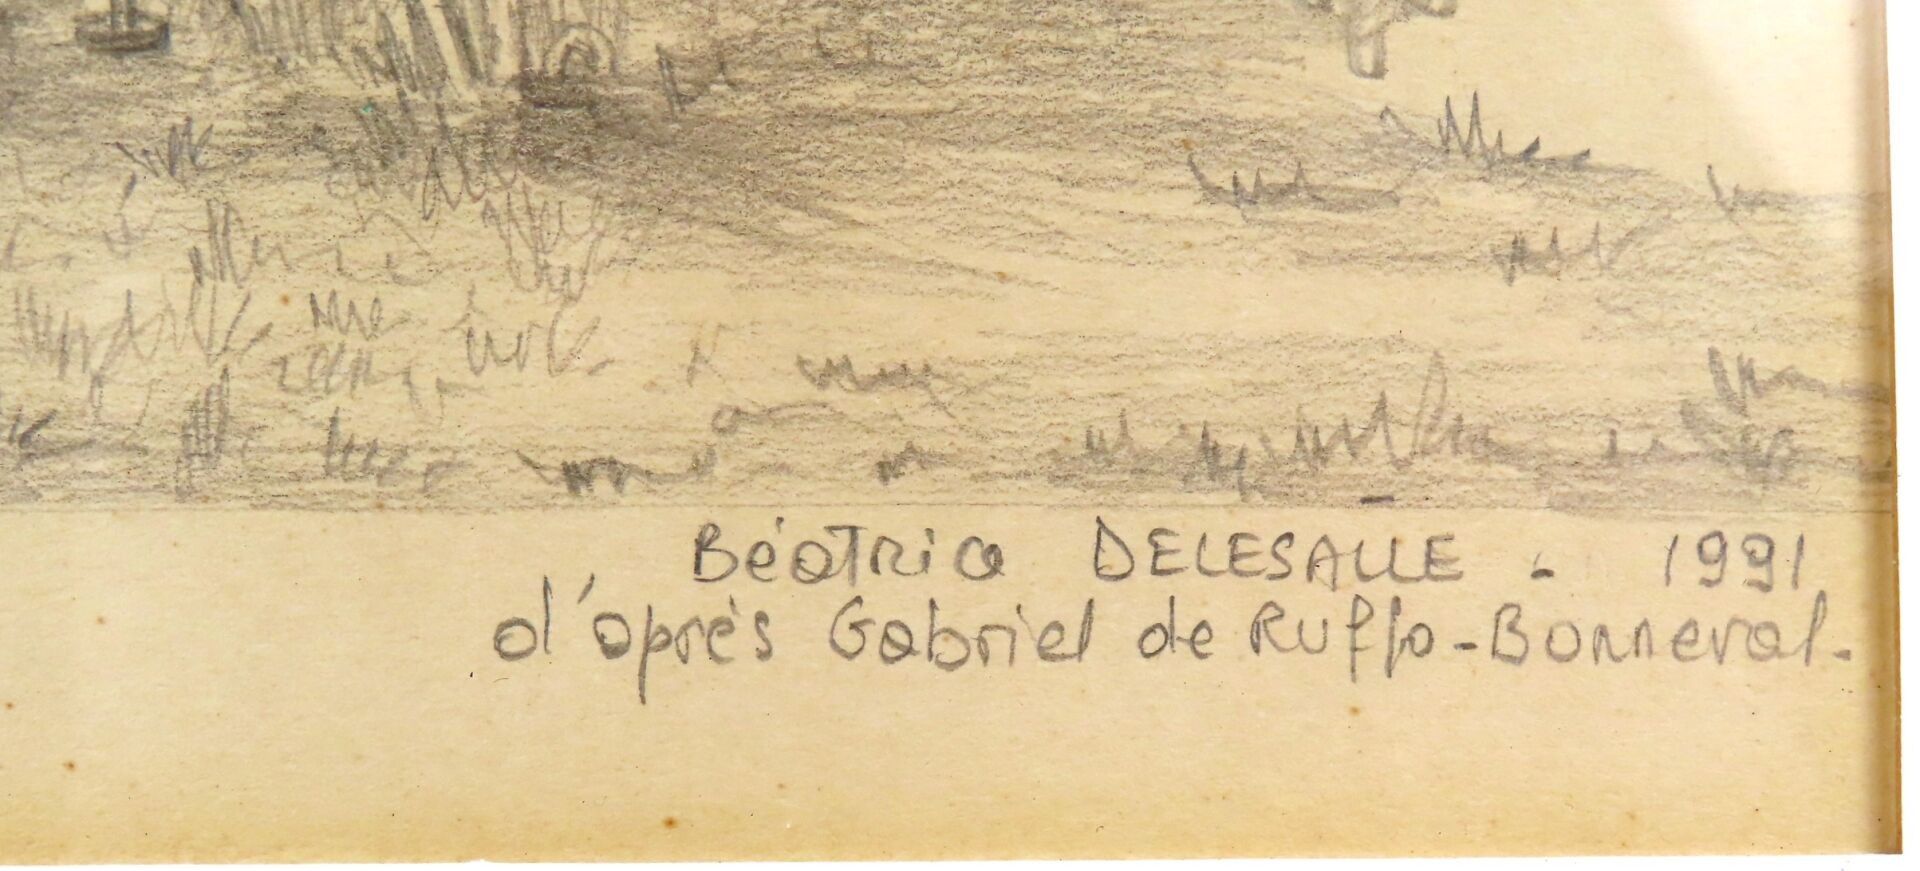 Béatrice DELESALLE - 1991
d'après Gabriel de Ruffo-Bonneval.